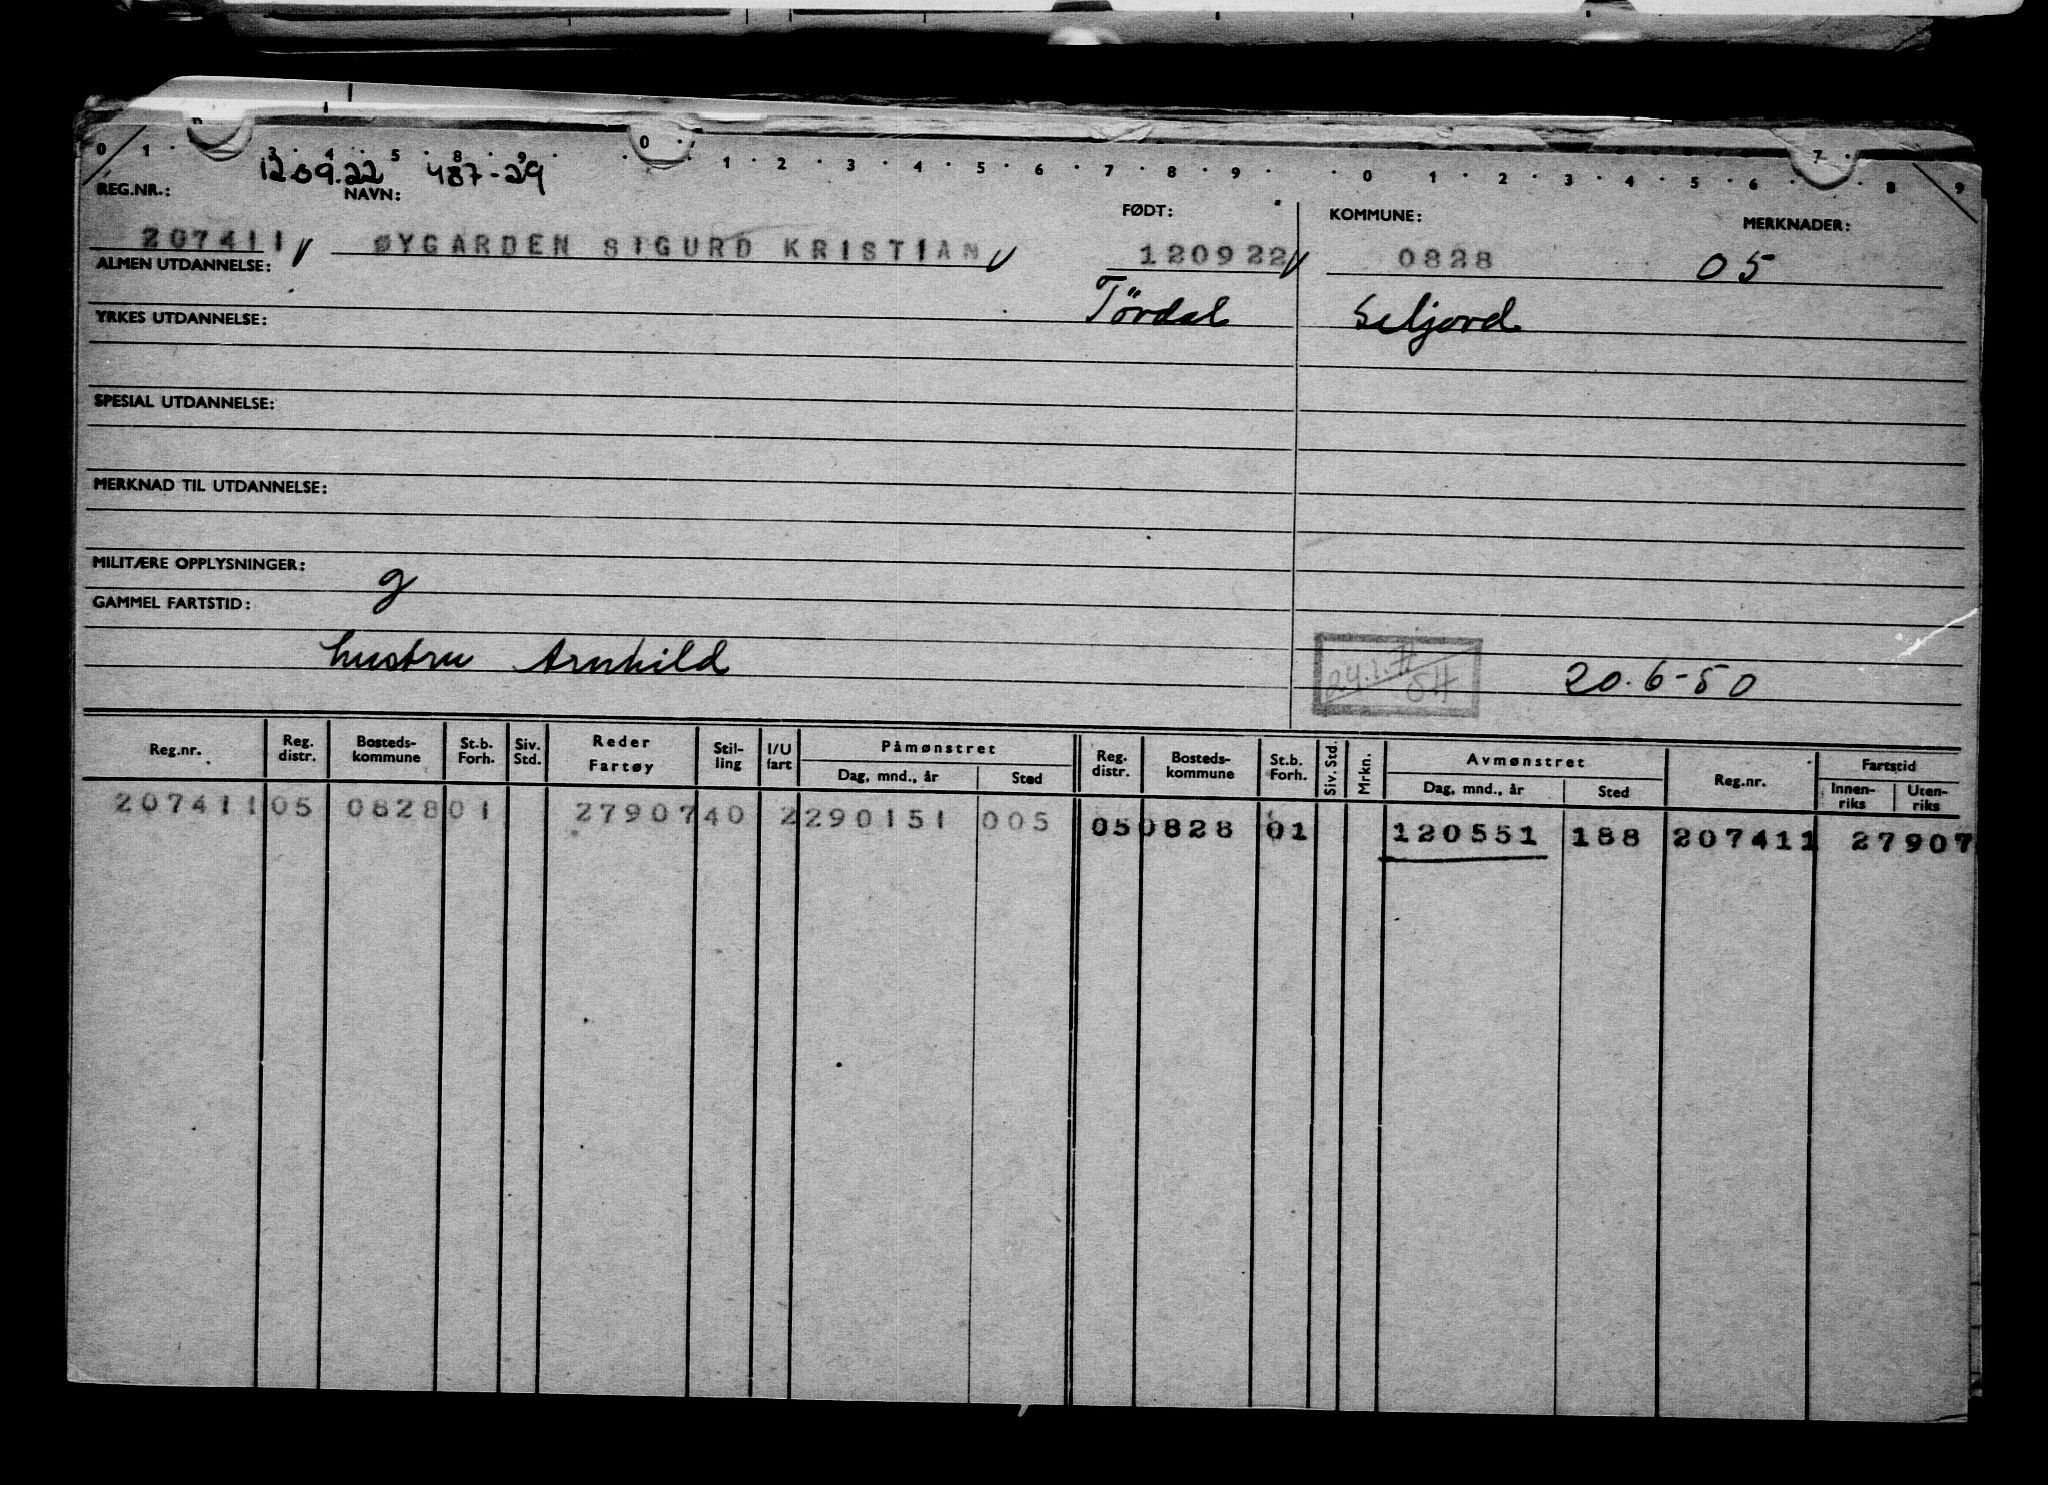 0 1 · 3 4 5 · 8 9 · · 0 · 1 · 2 · 3 · 4 · 5 · 6 · 7 · 8 · 9 · · 0 · 1 · 2 · 3 · 4 · 5 · 6 · 7 · 8 · 9
120922 487-29
REG.NR.: NAVN: FØDT: KOMMUNE: MERKNADER:
207411 ØYGARDEN SIGURD KRISTIAN 120922 0828 05
ALMEN UTDANNELSE:
Tördal Seljord
YRKES UTDANNELSE:
SPESIAL UTDANNELSE:
MERKNAD TIL UTDANNELSE:
MILITÆRE OPPLYSNINGER: g
GAMMEL FARTSTID:
hustru Arnhild 20.6-50
Reg.nr. Reg. distr. Bosteds-kommune St.b. Forh. Siv. Std. Reder Fartøy Stil-ling I/U fart Påmønstret Dag, mnd., år Sted Reg. distr. Bosteds-kommune St.b. Forh. Siv. Std. Mrkn. Avmønstret Dag, mnd., år Sted Reg.nr. Fartstid Innen-riks Uten-riks
207411 05 0828 01 27907 40 2 290151 005 05 0828 01 120551 188 207411 27907